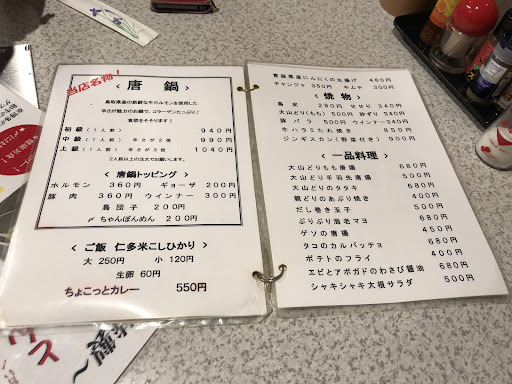 当店名物！
< 唐 鍋 >
鳥取県産の新鮮な牛ホルモンを使用した
辛さが魅力のお鍋で、コラーゲンたっぷり♪
食欲をそそります！
初級（１人前） 940円
中級（１人前） 辛さ２倍 990円
上級（１人前） 辛さ３倍 1040円
2人前以上の注文でお願します。
< 唐鍋トッピング >
ホルモン 360円 ギョーザ 200円
豚 肉 360円 ウインナー 300円
鳥団子 200円
〆 ちゃんぽんめん 200円
< ご飯 仁多米こしひかり >
大 250円 小 120円
生卵 60円
ちょこっとカレー 550円
青森県産にんにくの丸揚げ 460円
チャンジャ 350円 キムチ 300円
< 焼 物 >
大山どり(もも) 500円 砂ずり 340円
豚 バラ 500円 ウインナー 340円
牛ハラミたれ焼き 850円
ジンギスカン(野菜付き) 900円
< 一品料理 >
大山どりもも唐揚 680円
大山どり手羽先唐揚 580円
大山どりのタタキ 680円
親どりのあぶり焼き
だし巻き玉子
ぷりぷり海老マヨ 680円
ゲソの唐揚 450円
タコのカルパッチョ 680円
ポテトのフライ 400円
エビとアボガドのわさび醤油 680円
シャキシャキ大根サラダ 500円